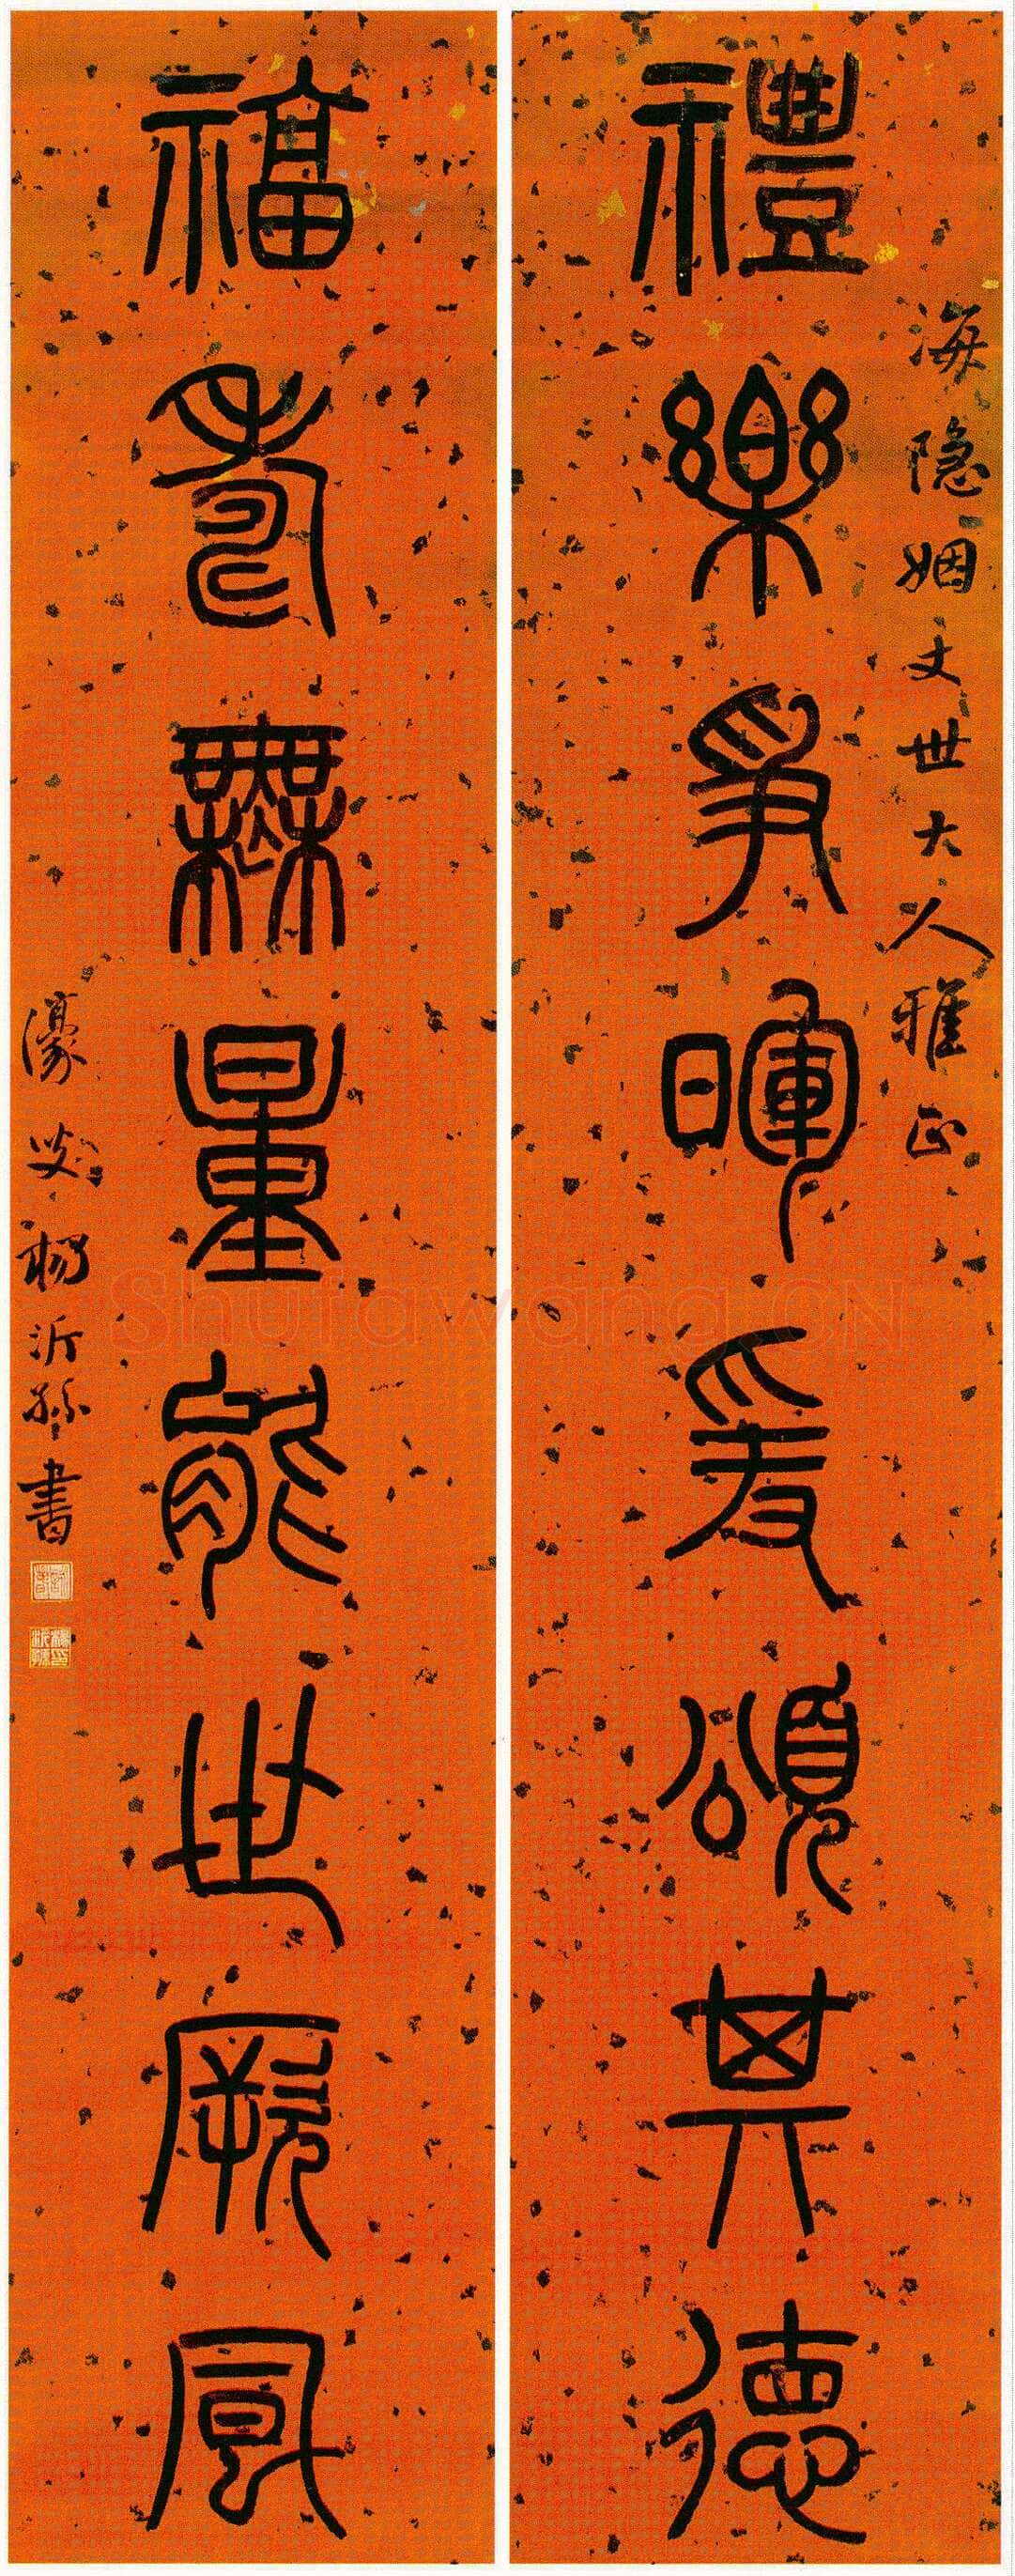 海隐姻丈世大人雅正
禮樂爲暉爰頌其德
福壽無量能世厥風
濠叟楊沂孫書
Shufawang.CN